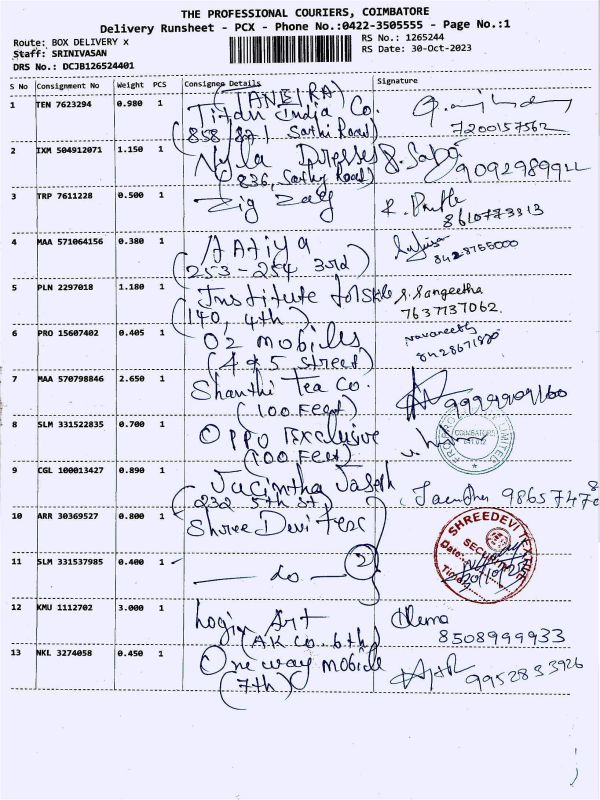 THE PROFESSIONAL COURIERS, COIMBATORE
Delivery Runsheet - PCX - Phone No.:0422-3505555 - Page No.:1
Route: BOX DELIVERY x
Staff: SRINIVASAN
DRS No.: DCJB126524401
RS No.: 1265244
RS Date: 30-Oct-2023
S No Consignment No Weight PCS Consignee Details Signature
1 TEN 7623294 0.980 1 (TANEIRA)
Titan India Co.
(858 871 Sathi Road)
7200157562
2 IXM 504912071 1.150 1 Nyla Dresses
(836, Sathy Road)
9092989922
3 TRP 7611228 0.500 1 Zig Zag
8610773313
4 MAA 571064156 0.380 1 AAtiya
(253-254 3rd)
8428755000
5 PLN 2297018 1.180 1 Institute for Skle
(140, 4th)
S. Sangeetha
7637737062
6 PRO 15607402 0.405 1 O2 mobiles
(4 & 5 Street)
Navaneeth
7 MAA 570798846 2.650 1 Shanthi Tea Co.
(100 Feet)
8 SLM 331522835 0.700 1 OPPO Exclusive
(100 Feet)
COIMBATORE
LIMITED
9 CGL 100013427 0.890 1 Jacintha Jaseph
(232 5th St)
10 ARR 30369527 0.800 1 Shree Devi Tex
SHREEDEVI TEXTILE
SECURITY
Date:
Time:
11 SLM 331537985 0.400 1 — do — 2
12 KMU 1112702 3.000 1 Login Art
(AK Co. 6th)
Hema
8508999933
13 NKL 3274058 0.450 1 One way mobile
(7th)
9952833926